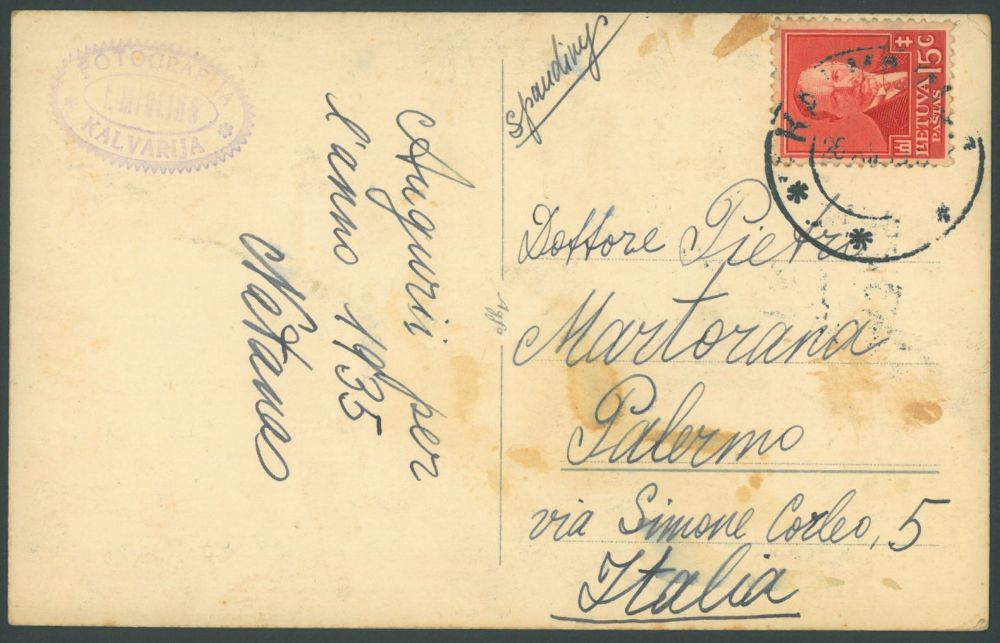 FOTOGRAFIJA
KALVARIJA
Auguri per
l'anno 1935
Spaudiny
LIETUVA 15 C
PAŠTAS
26
Agfa
Dottore Pietro
Martorana
Palermo
via Simone Corleo, 5
Italia